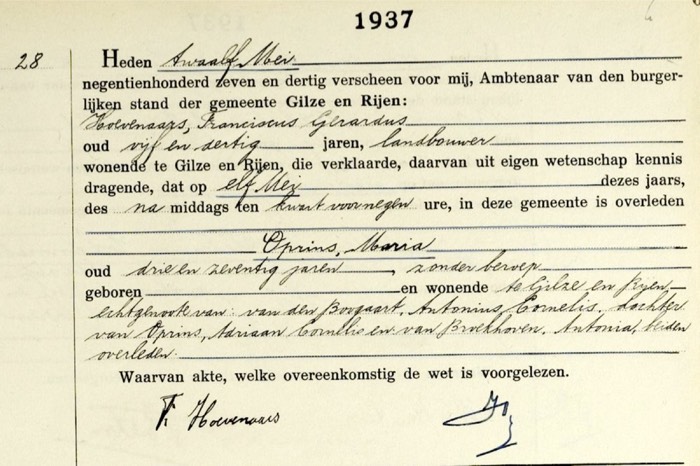 1937
28
Heden twaalf Mei
negentienhonderd zeven en dertig verscheen voor mij, Ambtenaar van den burger-
lijken stand der gemeente Gilze en Rijen:
Hoevenaars, Franciscus Gerardus
oud vijf en dertig jaren, landbouwer
wonende te Gilze en Rijen, die verklaarde, daarvan uit eigen wetenschap kennis
dragende, dat op elf Mei dezes jaars,
des na middags ten kwart voor negen ure, in deze gemeente is overleden
Oprins, Maria
oud drie en zeventig jaren, zonder beroep
geboren en wonende te Gilze en Rijen,
echtgenoote van: van den Boogaart, Antonius Cornelis, dochter
van Oprins, Adriaan Cornelis en van Broekhoven, Antonia, beiden
overleden.
Waarvan akte, welke overeenkomstig de wet is voorgelezen.
F. Hoevenaars